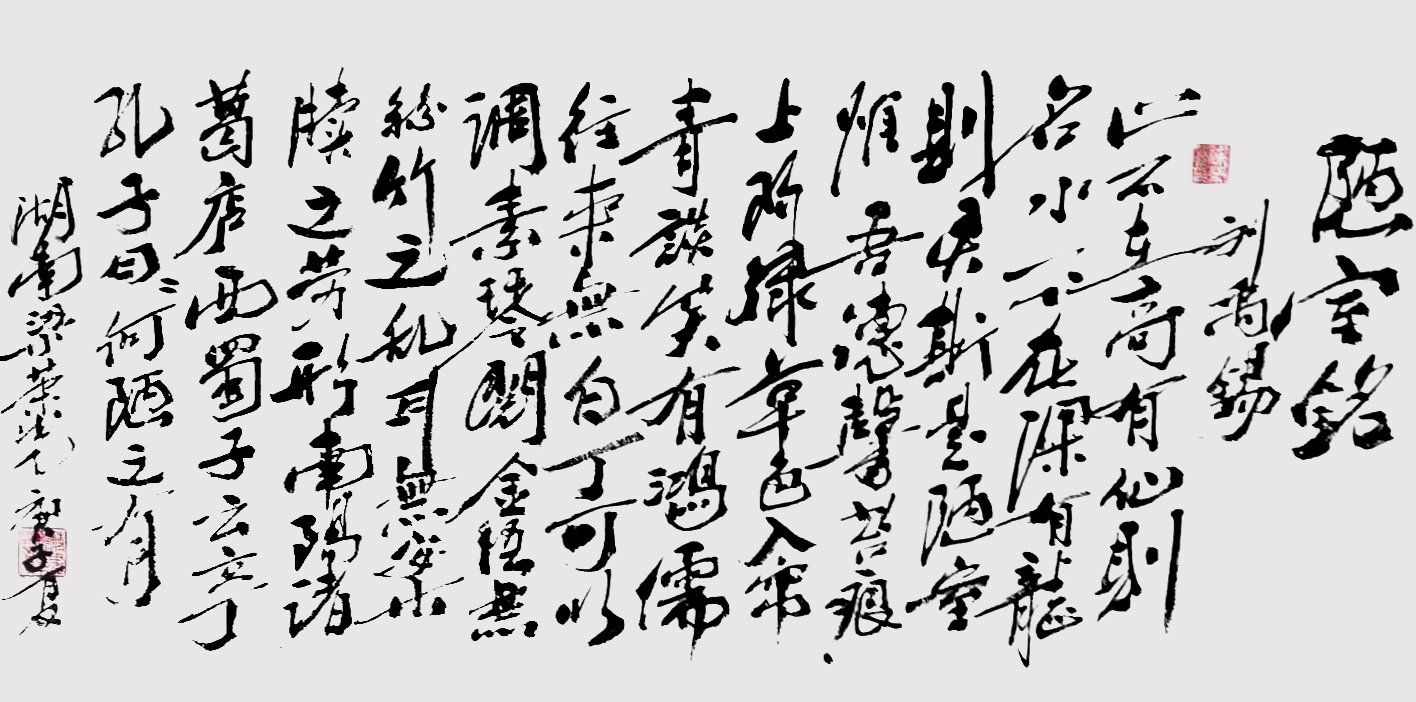 陋室銘
刘禹錫
山不在高有仙則
名水不在深有龍
則灵斯是陋室
惟吾德馨苔痕
上阶绿草色入帘
青談笑有鴻儒
往来無白丁可以
调素琴閲金経無
絲竹之乱耳無案
牍之劳形南陽诸
葛庐西蜀子云亭
孔子曰：何陋之有
湖南梁 庚子夏